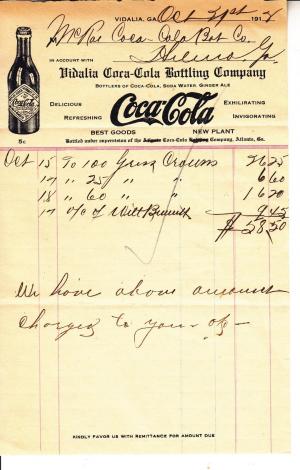 VIDALIA, GA. Oct 21st 191
McRae Coca-Cola Bot Co.
Helena, Ga.
IN ACCOUNT WITH
Vidalia Coca-Cola Bottling Company
BOTTLERS OF COCA-COLA, SODA WATER, GINGER ALE
DELICIOUS
REFRESHING
Coca-Cola
EXHILIRATING
INVIGORATING
BEST GOODS
NEW PLANT
5c
Bottled under supervision of the Coca-Cola Bottling Company, Atlanta, Ga.
Oct 15 To 100 Gross Crowns 26 25
17 " 25 " " 6 60
18 " 60 " " 16 20
17 a/c of Will 9 45
$ 58 50
We have above amount
charged to you
KINDLY FAVOR US WITH REMITTANCE FOR AMOUNT DUE